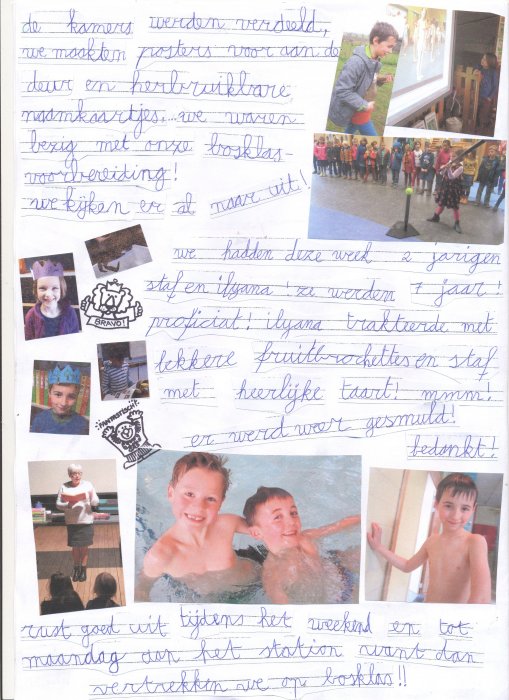 de kamers werden verdeeld,
we maakten posters voor aan de
deur en herbruikbare
naamkaartjes... we waren
bezig met onze bosklas-
voorbereiding!
we kijken er al naar uit!
we hadden deze week 2 jarigen
staf en ilyana! ze werden 7 jaar!
proficiat! ilyana trakteerde met
lekkere fruitbrochettes en staf
met heerlijke taart! mmm!
er werd weer gesmuld!
bedankt!
BRAVO!
FANTASTISCH!
rust goed uit tijdens het weekend en tot
maandag aan het station want dan
vertrekken we op bosklas!!